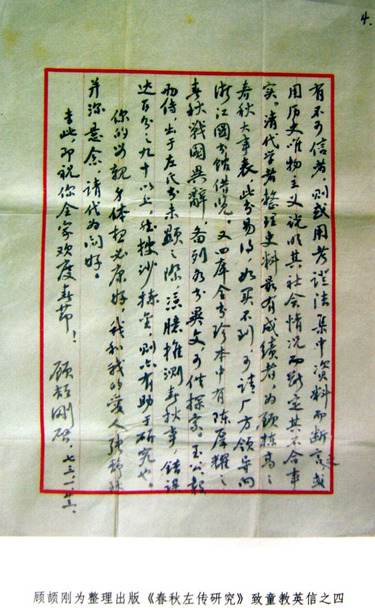 4.
有不可信者,则或用考证法集中资料而断言之,或
用历史唯物主义说明其社会情况而断定其不合事
实。清代学者整理史料最有成绩者,为顾栋高之
春秋大事表,此书易得,如买不到,可请厂方领导向
浙江图书馆借览。又四库全书珍本中有陈厚耀之
春秋战国异辞,备列各书异文,可供探索。至公、穀
两传,出于左氏书未显之际,凭臆推测春秋事,错误
达百分之九十以上,然披沙拣金,则亦有助于研究也。
你的父亲身体想必康好,我和我的爱人张静秋
并深意念,请代为问好。
专此,即祝你全家欢度春节!
顾颉刚启,七三、一、廿二、
顾颉刚为整理出版《春秋左传研究》致童教英信之四